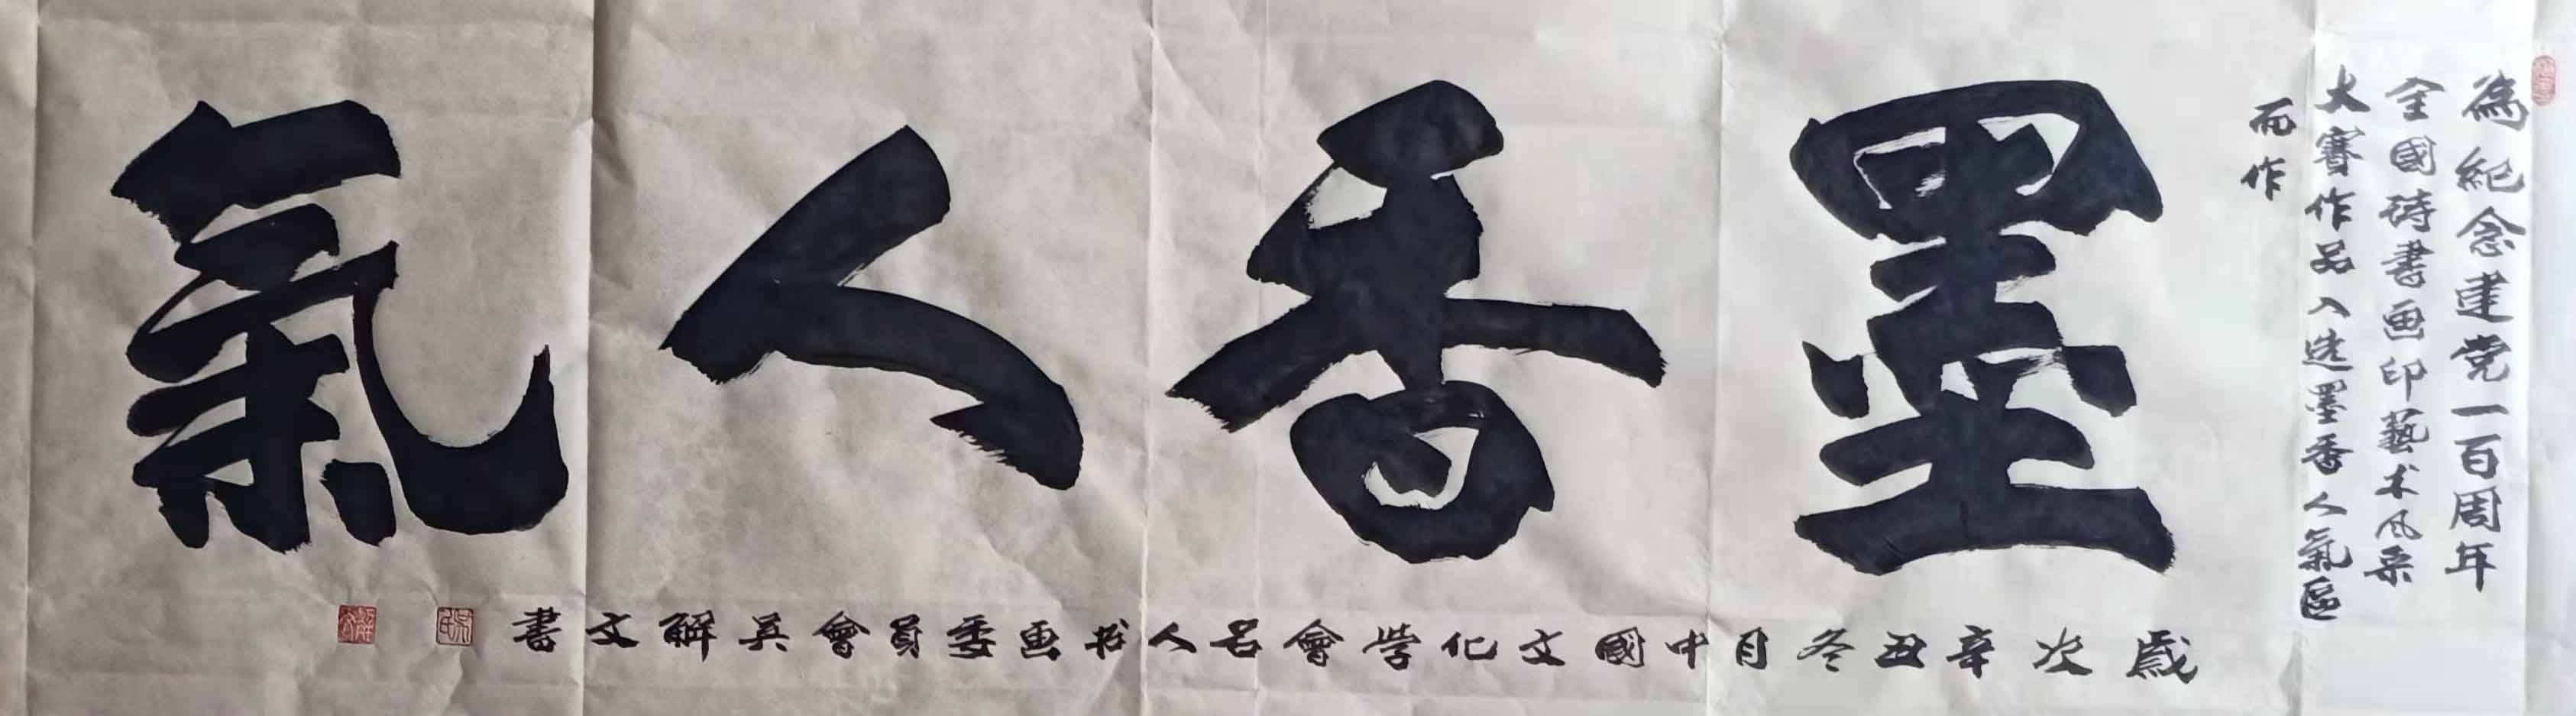 為紀念建党一百周年
全國詩書画印藝术风采
大賽作品入选墨香人氣區
而作
墨香人氣
歲次辛丑冬月中國文化學會名人书画委員會吴解文書